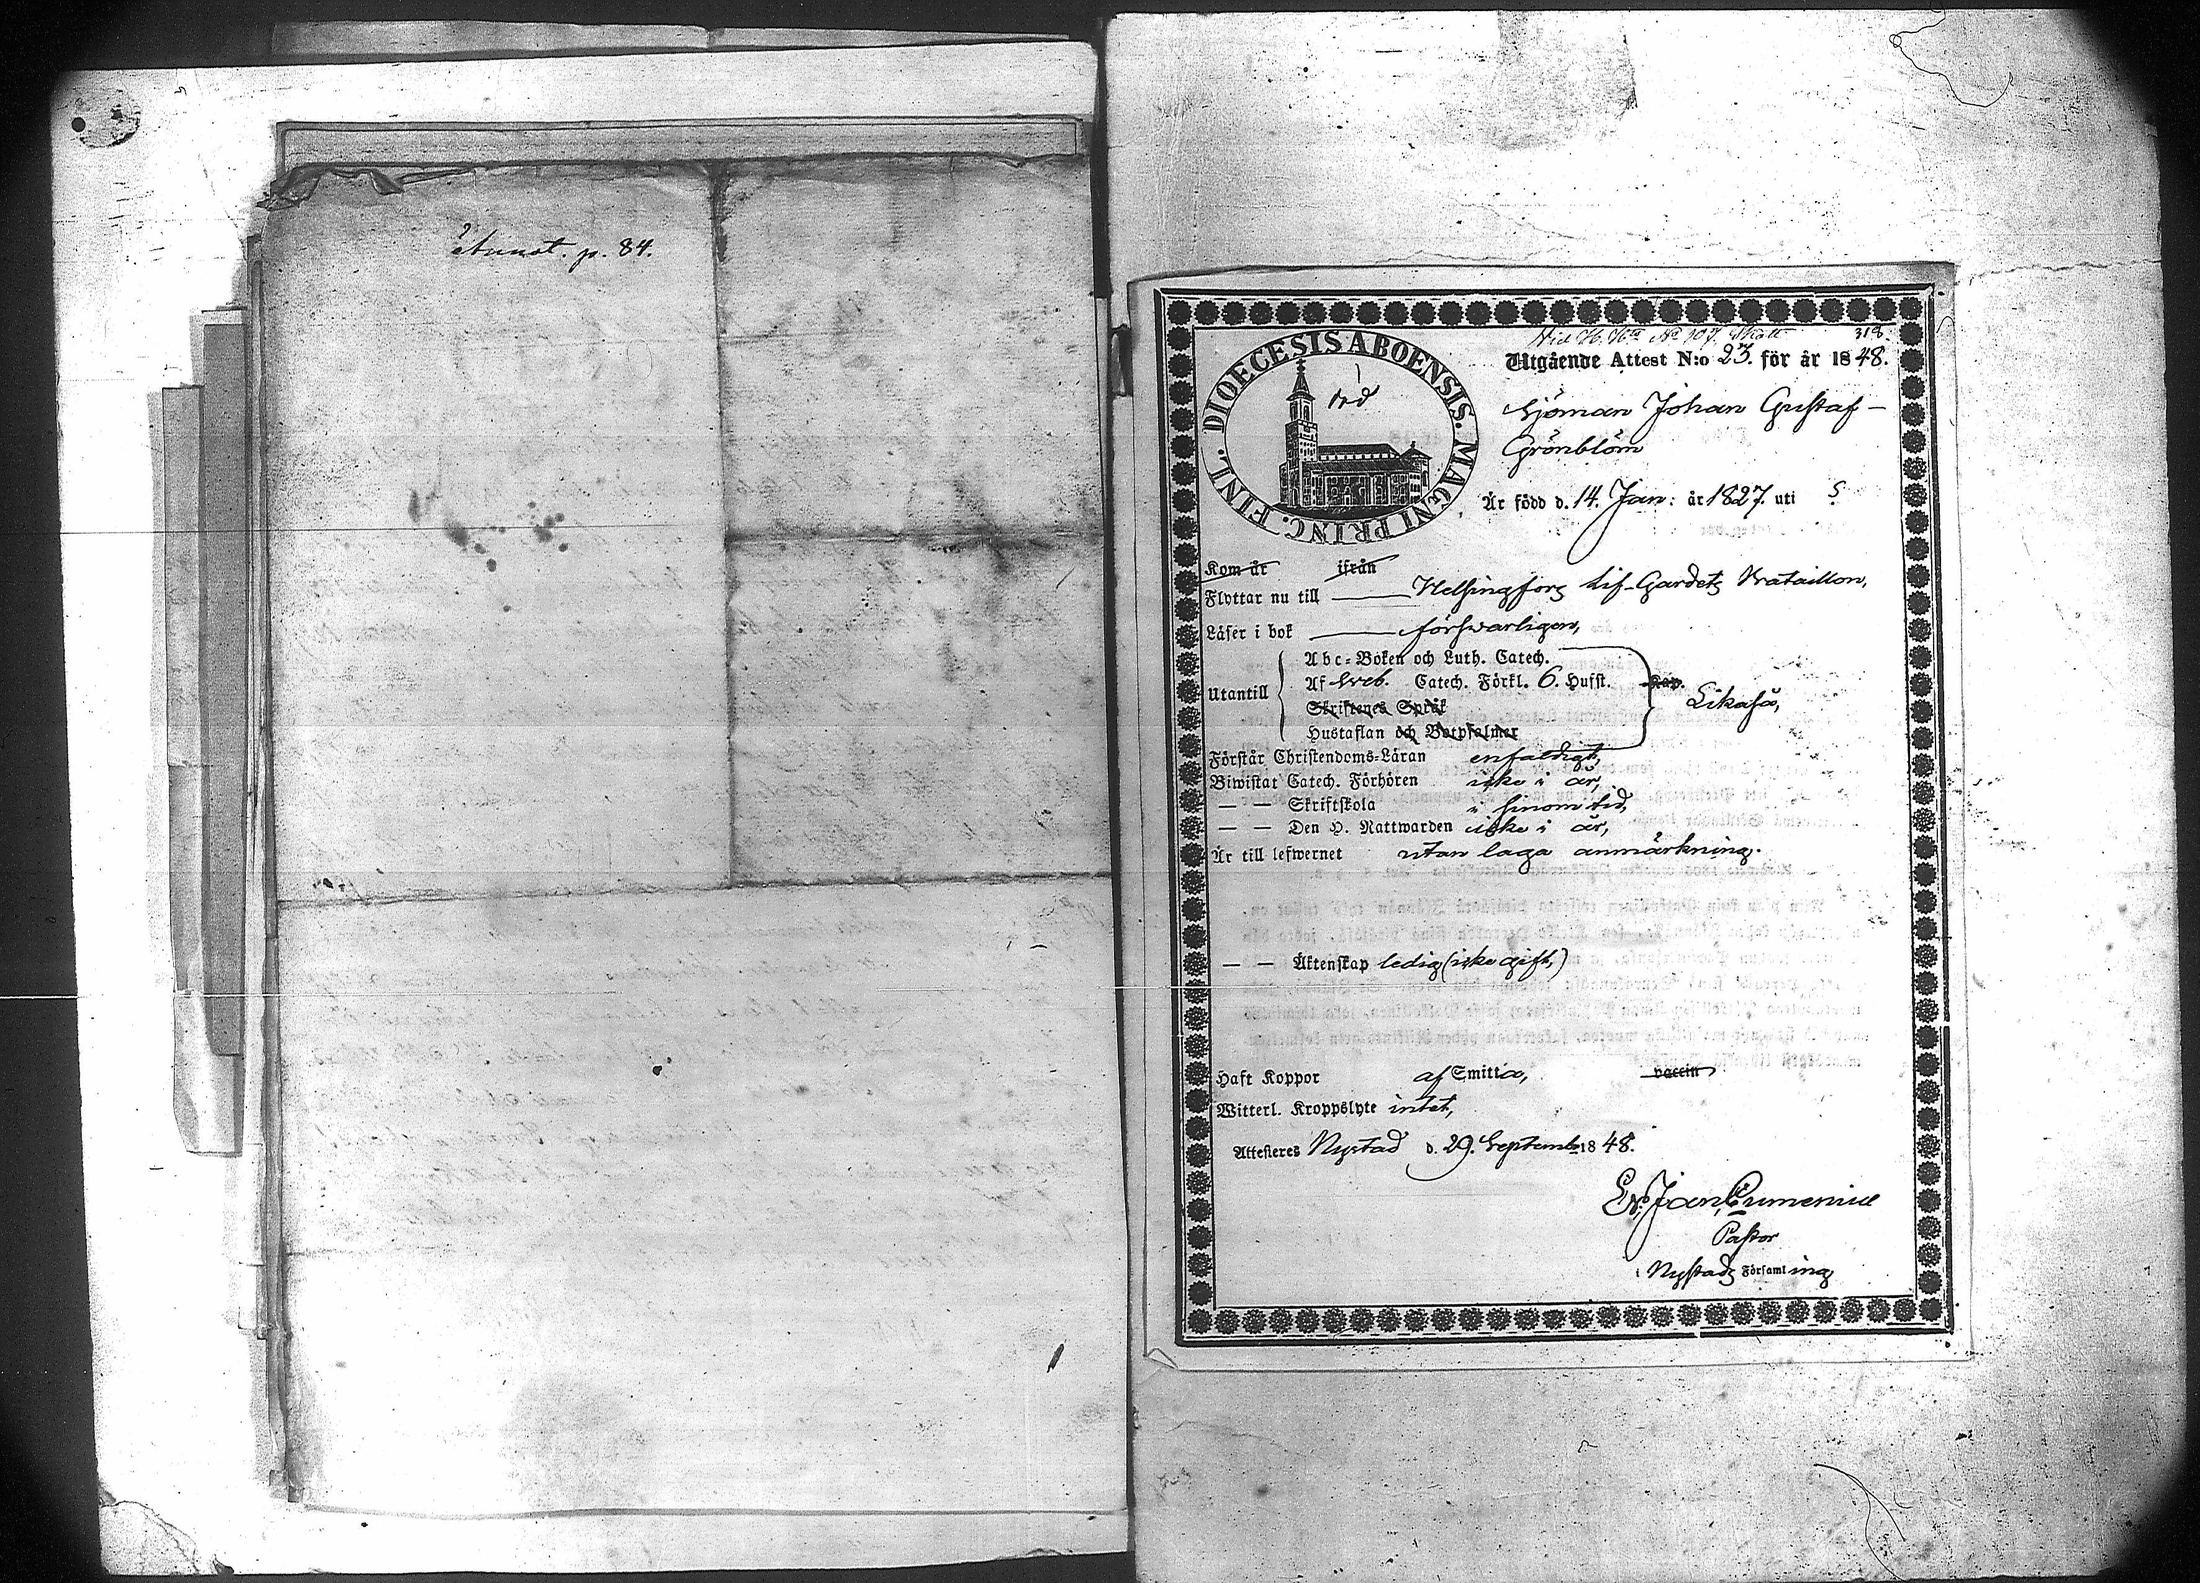 Annot. p. 84.
Vid N:o 107. 318.
DIOECESIS ABOENSIS. MAGNI PRINC. FINL.
Utgående Attest N:o 23. för år 1848.
Sjöman Johan Gustaf –
Grönblom
Är född d. 14. Jan: år 1827. uti
Kom år ifrån
Flyttar nu till Helsingfors Lif-Gardets Bataillon,
Läser i bok försvarligen,
Abc-Boken och Luth. Catech.
Utantill Af Sveb. Catech. Förkl. 6. Hufst. Kap. Likaså,
Skriftenes Språk
Hustaflan och Botpsalmer
Förstår Christendoms-Läran enfaldigt,
Biwistat Catech. Förhören icke i år,
— — Skriftskola i sinom tid,
— — Den H. Nattwarden icke i år,
Är till lefwernet utan laga anmärkning.
— — Äktenskap ledig (icke gift,)
Haft Koppor af Smitta, vaccin
Witterl. Kroppslyte intet,
Attesteres Nystad d. 29. Septemb. 1848.
Pastor
i Nystads Församling